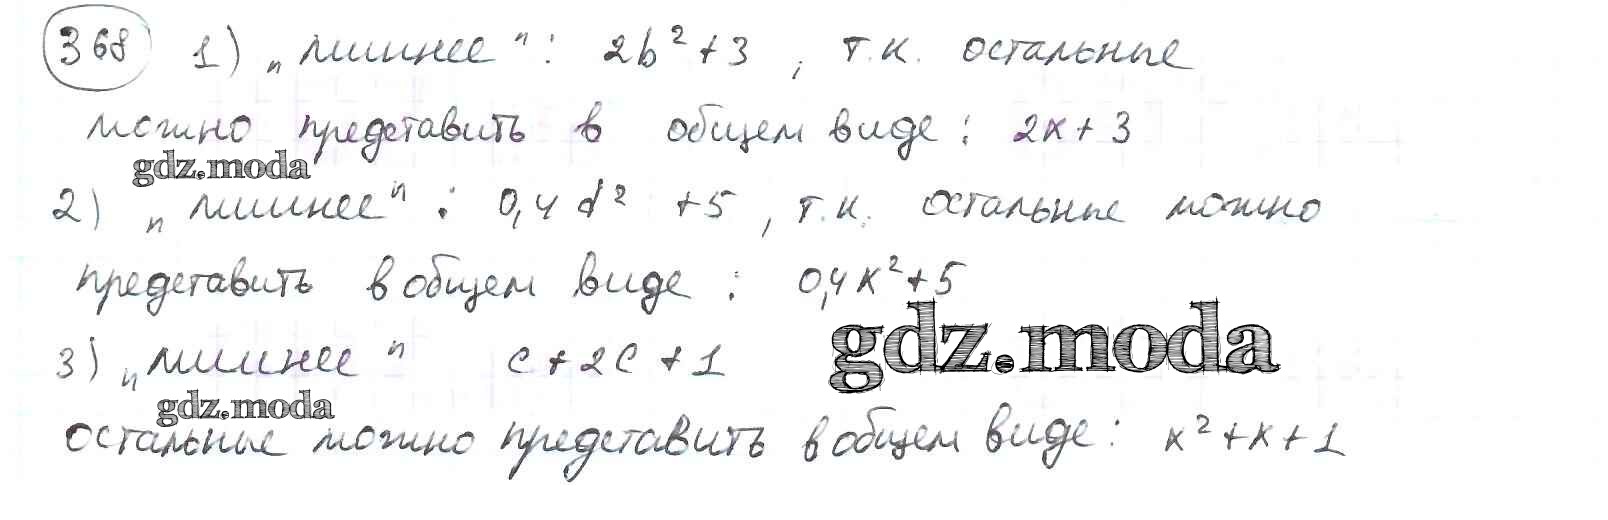 368 1) „лишнее": 2b² + 3, т.к. остальные
можно представить в общем виде: 2x + 3
gdz.moda
2) „лишнее": 0,4d² + 5, т.к. остальные можно
представить в общем виде: 0,4x² + 5
gdz.moda
3) „лишнее" c + 2c + 1
gdz.moda
остальные можно представить в общем виде: x² + x + 1